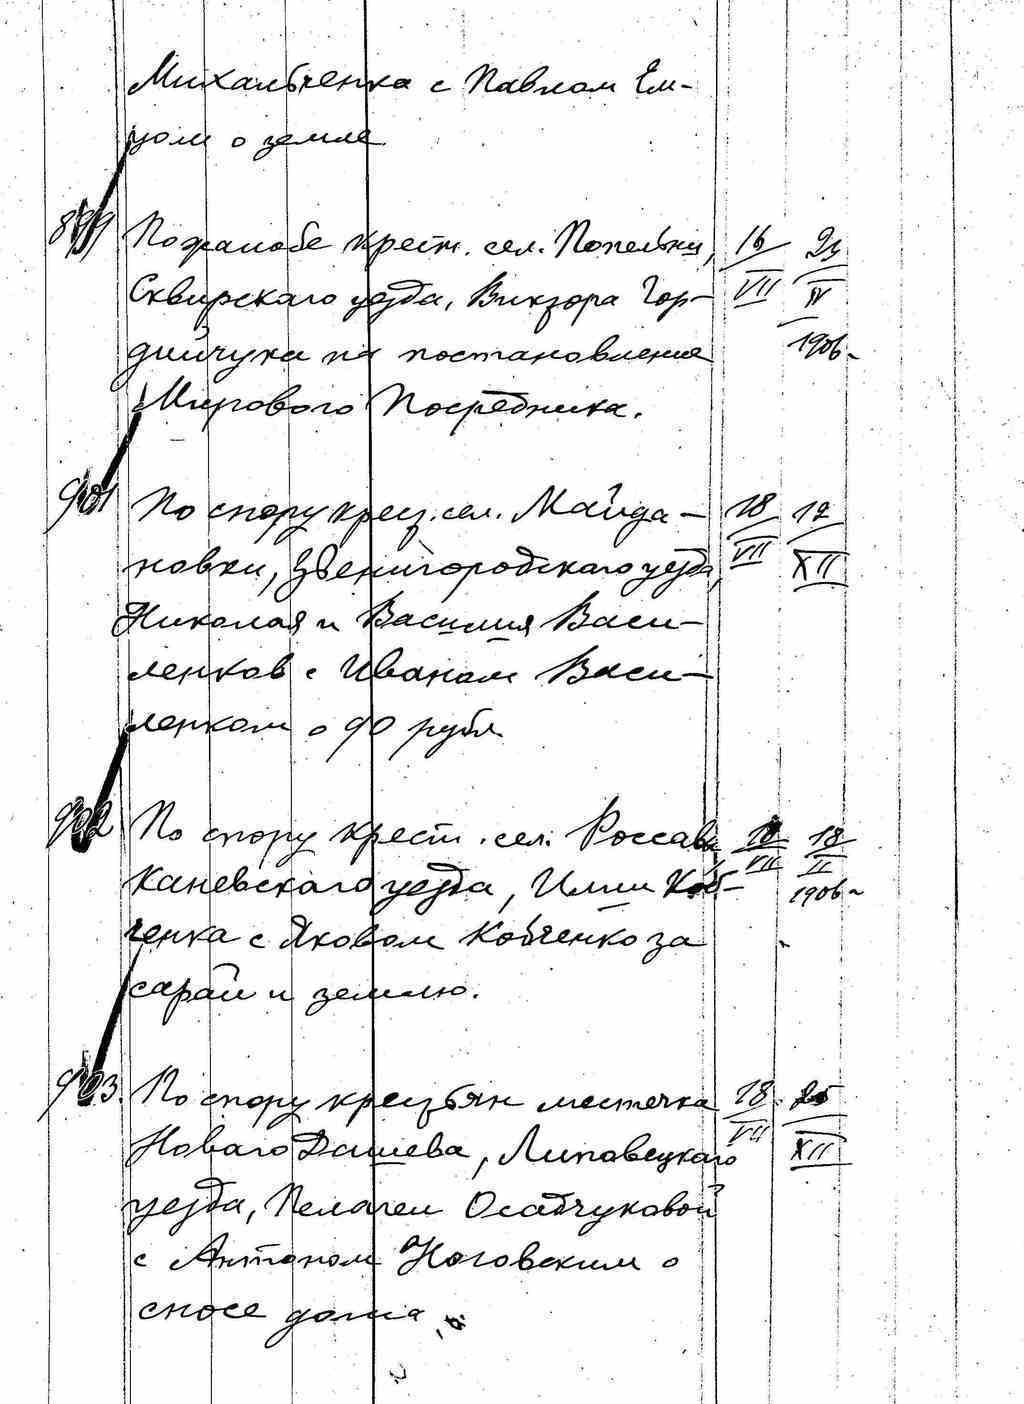 Михальченка с Павлом Ем-
цом о земле
899 По жалобе крест. сел. Попельни, 16 24
Сквирскаго уезда, Виктора Гор- VII IV
дийчука на постановление 1906
Мирового Посредника.
901 По спору крест. сел. Майда- 18 12
новки, Звенигородскаго уезда, VII XII
Николая и Василия Васи-
ленков с Иваном Васи-
ленком о 90 рубл
902 По спору крест. сел. Россава 18 18
Каневскаго уезда, Илии Коб- VII II
ченка с Яковом Кобченко за 1906
сарай и землю.
903. По спору крестьян местечка 18 25
Новаго Дашева, Липовецкаго VII XII
уезда, Пелагеи Осадчуковой
с Антоном Ноговским о
сносе дома